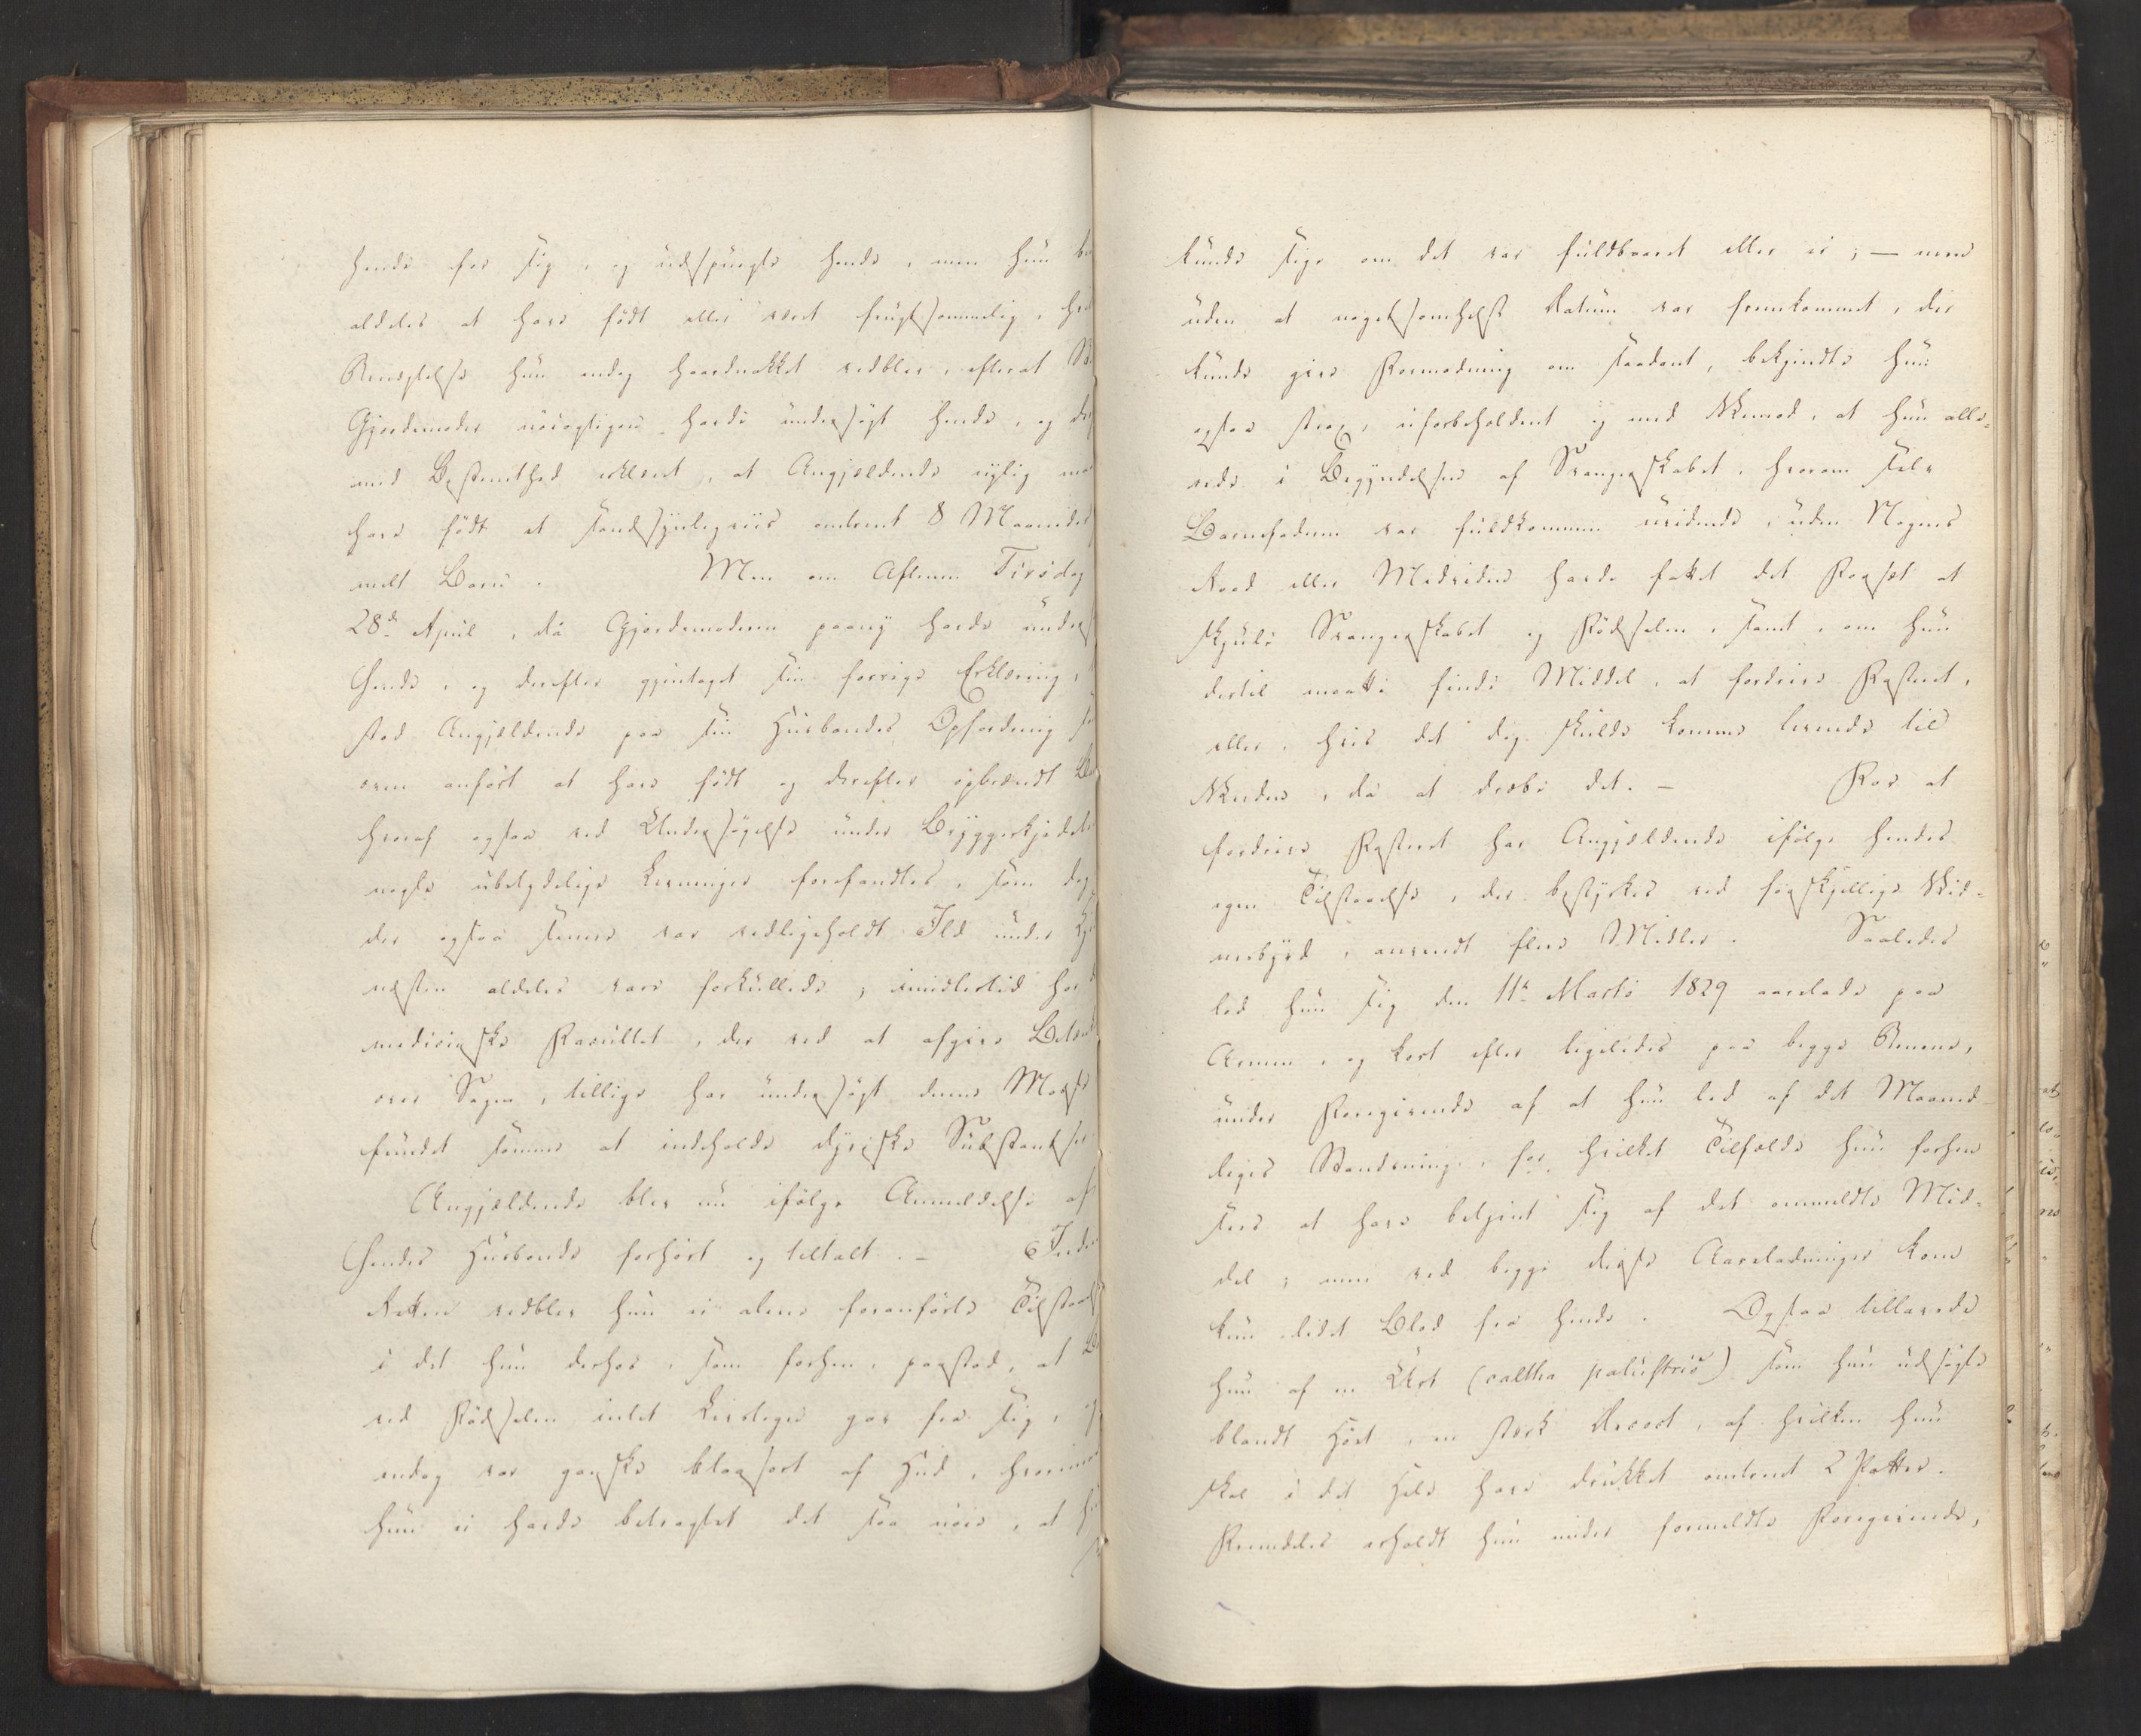 hende for sig, og udspurgte hende, men hun be
aldeles at have født eller været frugtsommelig, hvil
Benegtelse hun endog haardnakket vedblev, efterat
Gjordemoder nöiagtigere havde undersøgt hende, og de
med Bestemthed erklæret, at Angjældende nylig maa
have født et sandsynligviis omtrent 8 Maaneder
melt Barn. Men om Aftenen Tirsdag
28de April, da Gjordemoderen paany havde unders
hende, og derefter gjentaget sin forrige Erklæring,
stod Angjældende paa sin Husbondes Opfordring
oven anført at have født og derefter opbrændt
hvoraf ogsaa ved Undersøgelse under Bryggerkjedel
nogle ubetydelige Levninger forefandtes, som dog
der ogsaa senere var vedligeholdt Ild under
næsten aldeles vare forkullede; imidlertid har
medicinske Facultet, der ved at afgive Betænk
over Sagen, tillige har undersøgt denne Masse
fundet samme at indeholde dyriske Substantser
Angjældende blev nu ifølge Anmeldelse af
hendes Husbonde forhørt og tiltalt. – Inden
Retten vedblev hun ei alene foranførte Tilstaael
i det hun derhos, som forhen, paastod, at
ved Fødselen intet Livstegn gav fra sig, og
endog var ganske blaasort af Hud, hvorimod
hun ei havde betragtet det saa nøie, at
kunde sige om det var fuldbaaret eller ei; — men
uden at nogetsomhelst Datum var fremkommet, der
kunde give Formodning om saadant, bekjendte hun
ogsaa strax, uforbeholdent og med Anmod, at hun alle-
rede i Begyndelsen af Svangerskabet, hvorom selv
Barnefaderen var fuldkommen uvidende, uden Nogens
Raad eller Medviden havde fattet det Forsæt at
skjule Svangerskabet og Fødselen, samt, om hun
dertil maatte finde Middel, at fordrive Fosteret,
eller, hvis det dog skulde komme levende til
Verden, da at dræbe det. – For at
fordrive Fosteret har Angjældende ifølge hendes
egen Tilstaaelse, der bestyrkes ved forskjellige Vid-
nesbyrd, anvendt flere Midler. Saaledes
lod hun sig den 11te Marts 1829 aarelade paa
Armen, og kort efter ligeledes paa begge Benene,
under Foregivende af at hun led af det Maaned-
liges Standsning, for hvilket Tilfælde hun forhen
sees at have betjent sig af det ommeldte Mid-
del; men ved begge disse Aareladninger kom
kun lidet Blod fra hende. Ogsaa tillavede
hun af en Urt (caltha palustris) som hun udsøgte
blandt Høet, en stærk Decoct, af hvilken hun
skal i det Hele have drukket omtrent 2 Potter.
Fremdeles erholdt hun under formeldte Foregivende,